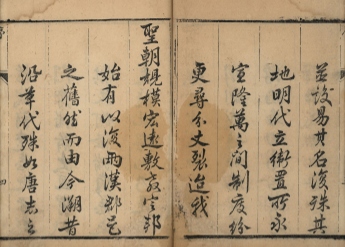 並設易其名復殊其
地明代立衛置所永
宣隆萬之間制度紛
更尋分丈張迨我
聖朝規模宏遠敷教寧邦
始有以復兩漢郡邑
之舊然而由今溯昔
沿革代殊如唐志之